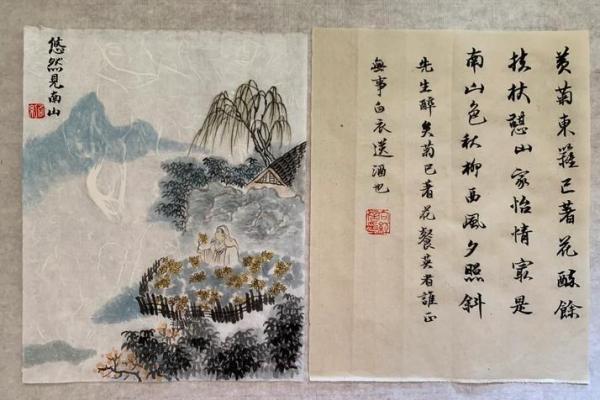 悠然見南山
黃菊東籬已著花醉餘
扶杖憩山家怡情最是
南山色秋柳西風夕照斜
先生醉矣菊已著花餐英者誰正
無事白衣送酒也